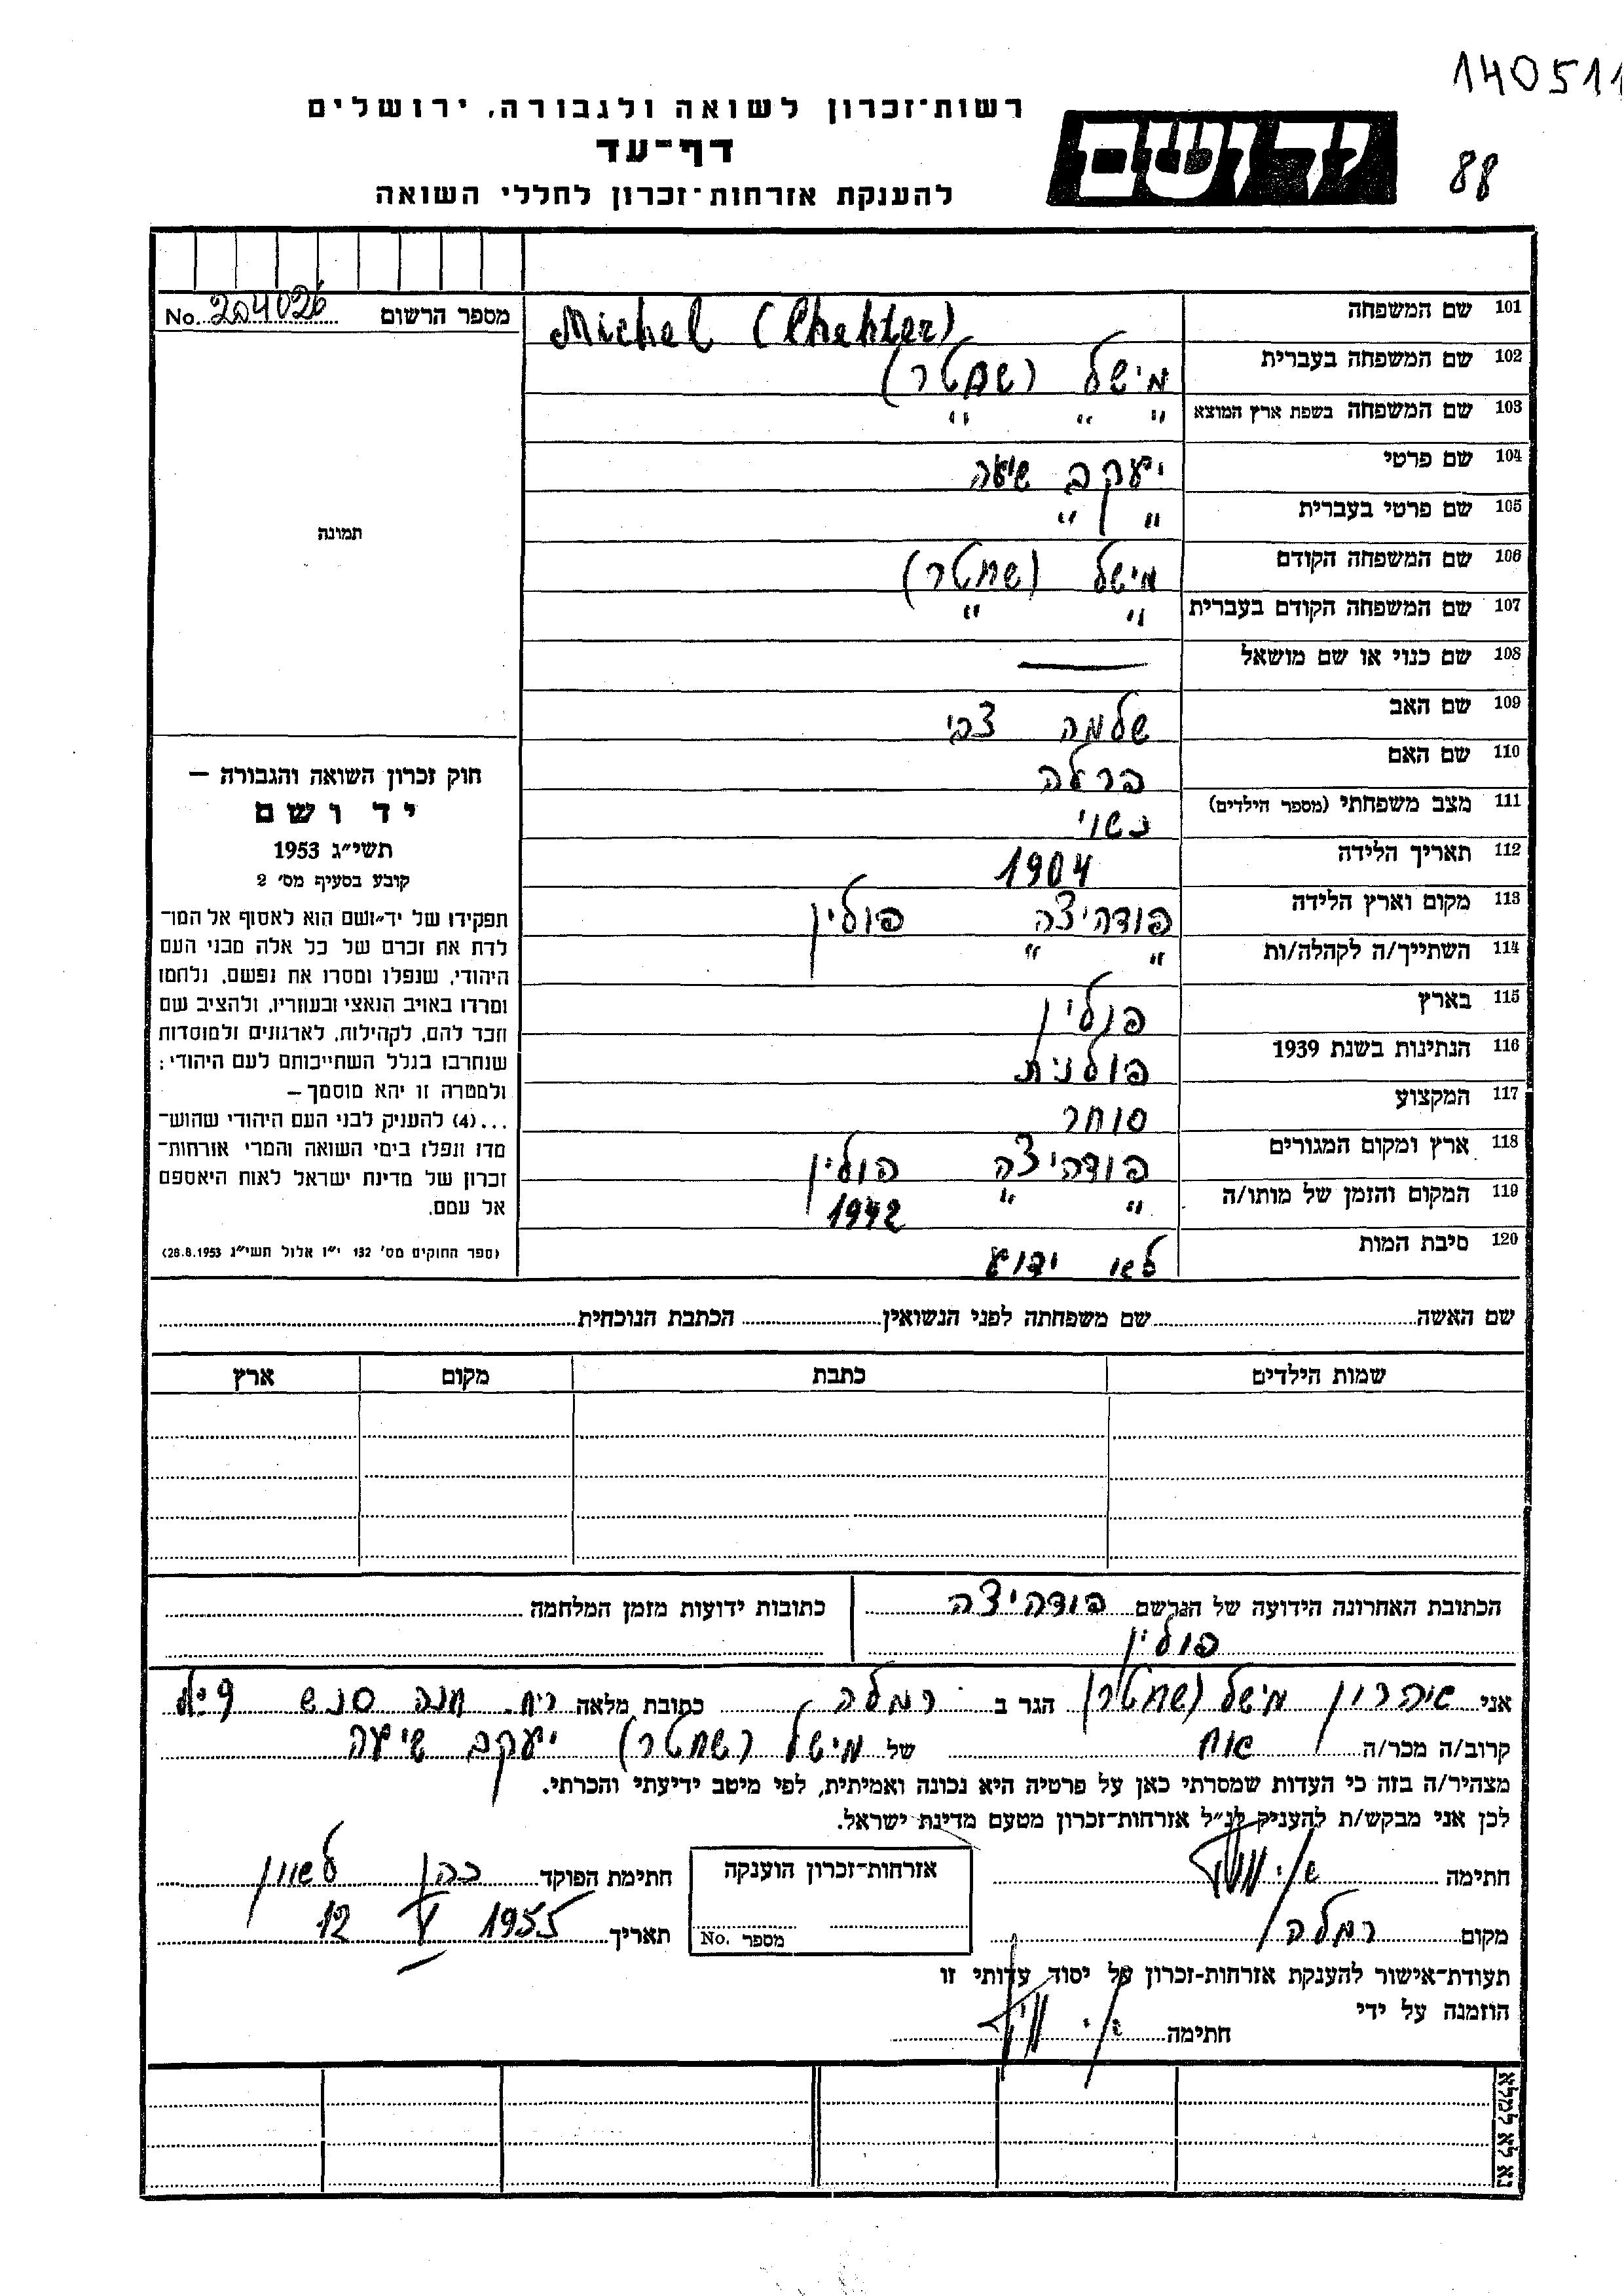 140511
88
יד ושם
רשות־זכרון לשואה ולגבורה, ירושלים
דף־עד
להענקת אזרחות־זכרון לחללי השואה
מספר הרשום No. 204026
תמונה
101 שם המשפחה Michel (Chehter)
102 שם המשפחה בעברית מישל (שחטר)
103 שם המשפחה בשפת ארץ המוצא " " "
104 שם פרטי יעקב שיעה
105 שם פרטי בעברית " "
106 שם המשפחה הקודם מישל (שחטר)
107 שם המשפחה הקודם בעברית " "
108 שם כנוי או שם מושאל —
109 שם האב שלמה צבי
110 שם האם פרלה
111 מצב משפחתי (מספר הילדים) נשוי
112 תאריך הלידה 1904
113 מקום וארץ הלידה פודהיצה פולין
114 השתייך/ה לקהלה/ות " "
115 בארץ פולין
116 הנתינות בשנת 1939 פולנית
117 המקצוע סוחר
118 ארץ ומקום המגורים פודהיצה פולין
119 המקום והזמן של מותו/ה " " 1942
120 סיבת המות לא ידוע
חוק זכרון השואה והגבורה —
יד ושם
תשי״ג 1953
קובע בסעיף מס׳ 2
תפקידו של יד־ושם הוא לאסוף אל המו־
לדת את זכרם של כל אלה מבני העם
היהודי, שנפלו ומסרו את נפשם, נלחמו
ומרדו באויב הנאצי ובעוזריו, ולהציב שם
וזכר להם, לקהילות, לארגונים ולמוסדות
שנחרבו בגלל השתייכותם לעם היהודי;
ולמטרה זו יהא מוסמך —
...(4) להעניק לבני העם היהודי שהוש־
מדו ונפלו בימי השואה והמרי אזרחות־
זכרון של מדינת ישראל לאות היאספם
אל עמם.
(ספר החוקים מס׳ 132 י״ז אלול תשי״ג 28.8.1953)
שם האשה שם משפחתה לפני הנשואין הכתבת הנוכחית
שמות הילדים כתבת מקום ארץ
הכתובת האחרונה הידועה של הנרשם פודהיצה
פולין
כתובות ידועות מזמן המלחמה
אני אהרון מישל (שחטר) הגר ב רמלה כתובת מלאה רח. חנה סנש
קרוב/ה מכר/ה אח של מישל (שחטר) יעקב שיעה
מצהיר/ה בזה כי העדות שמסרתי כאן על פרטיה היא נכונה ואמיתית, לפי מיטב ידיעתי והכרתי.
לכן אני מבקש/ת להעניק לנ״ל אזרחות־זכרון מטעם מדינת ישראל.
חתימה
מקום רמלה
אזרחות־זכרון הוענקה
מספר No.
חתימת הפוקד כהן
תאריך 12 V 1955
תעודת־אישור להענקת אזרחות־זכרון על יסוד עדותי זו
הוזמנה על ידי
חתימה
נא לא למלא